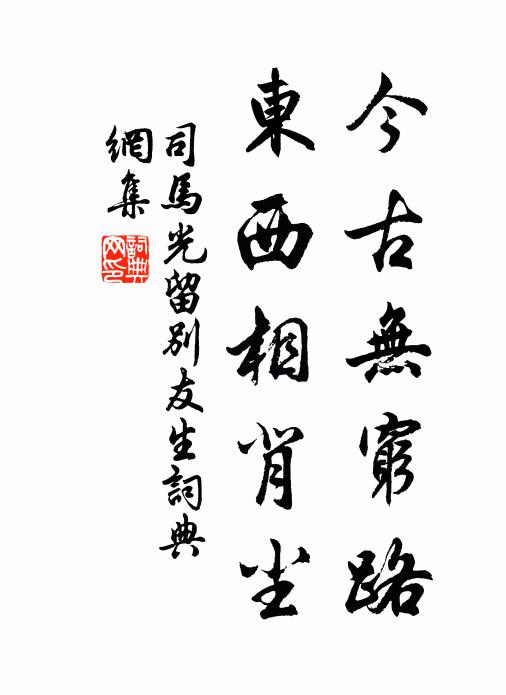 今古無窮路
東西相背尘
司馬光留別友生詞典
網集
詞典網印